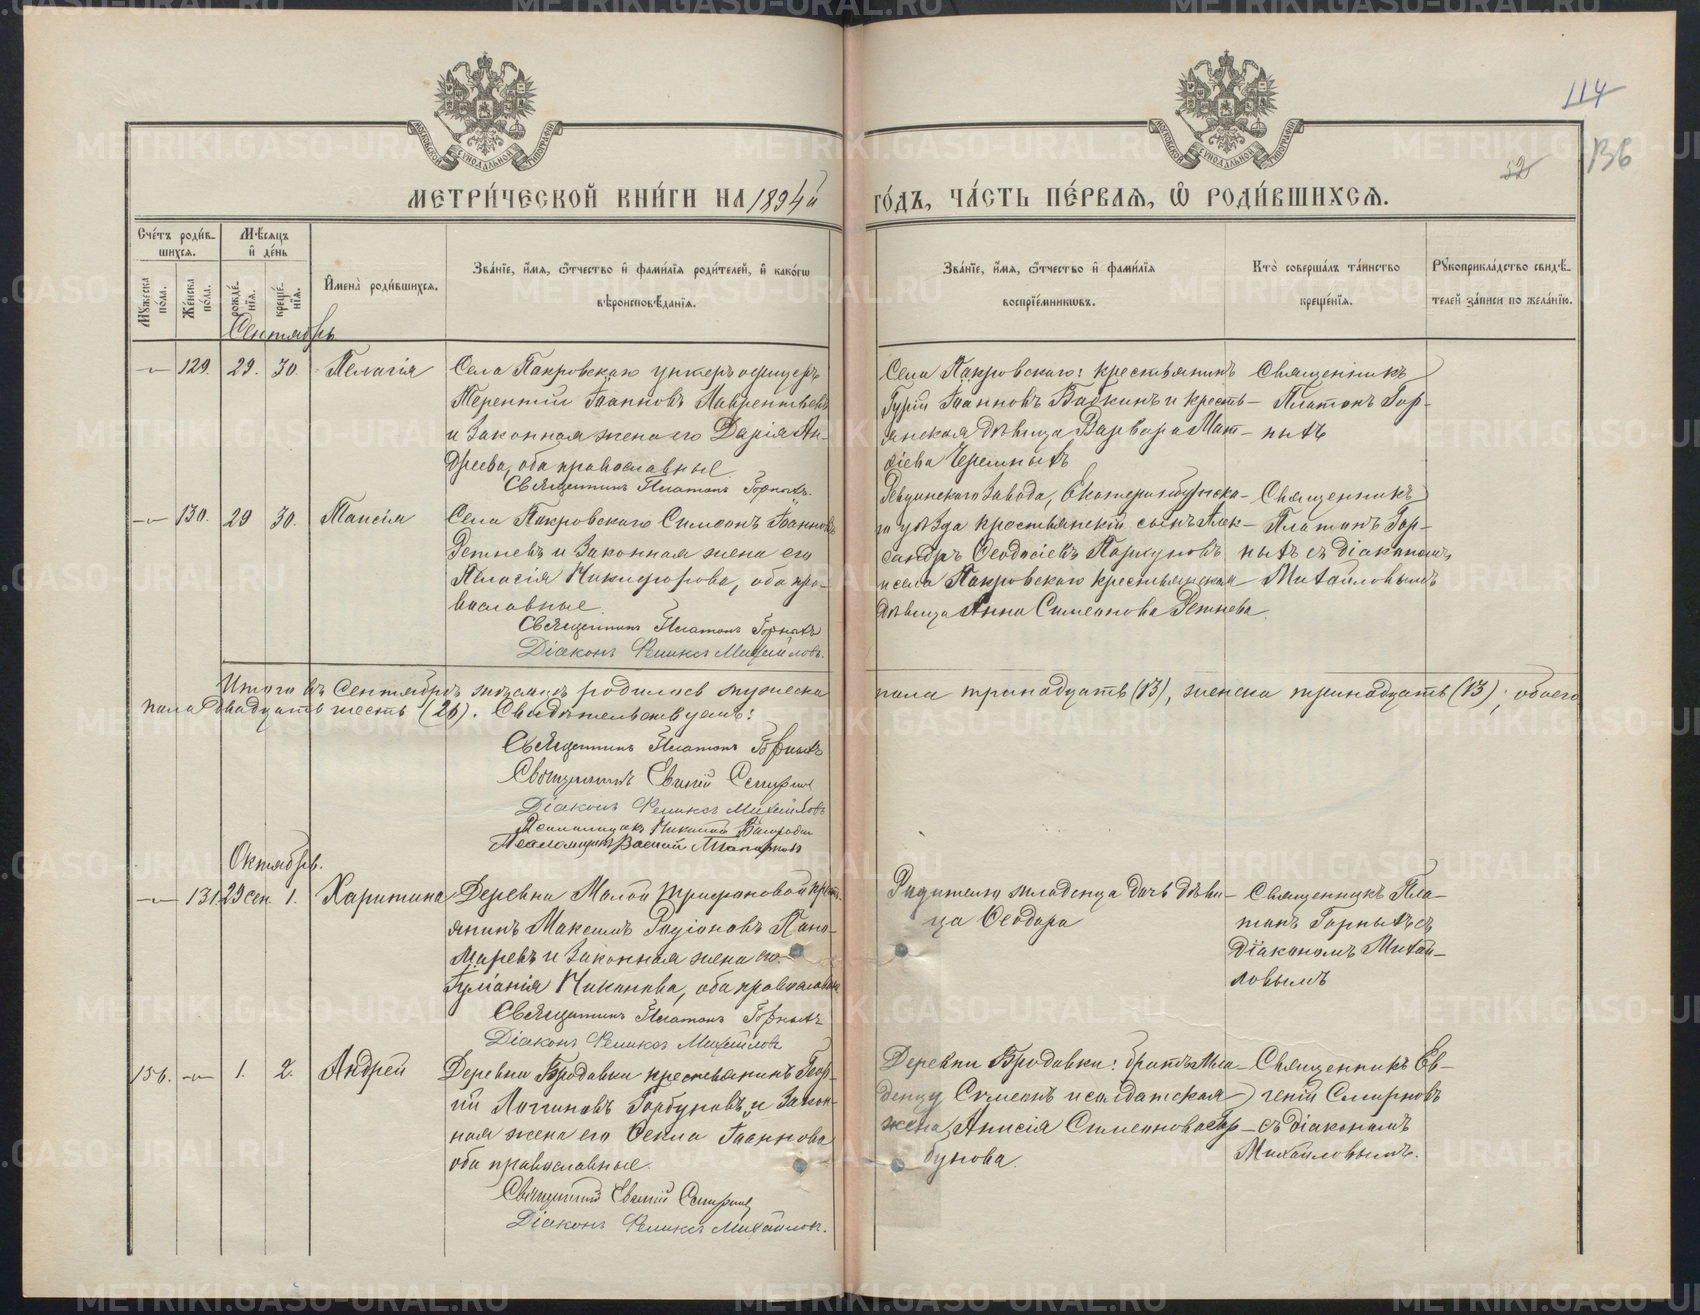 114
136
52
МОСКОВСКОЙ СѴНОДАЛЬНОЙ ТИПОГРАФІИ
МОСКОВСКОЙ СѴНОДАЛЬНОЙ ТИПОГРАФІИ
МЕТРИ́ЧЕСКОЙ КНИ́ГИ НА 1894й ГО́ДЪ, ЧА́СТЬ ПЕ́РВАЯ, Ѡ РОДИ́ВШИХСЯ.
Сче́тъ роди́в-
шихся.
Мѣ́сяцъ
и де́нь
Му́жеска пола.
Же́нска пола.
рожде́нїя.
креще́нїя.
Имена̀ роди́вшихся.
Зва́нїе, и́мя, ѻ́тчество и фами́лїя роди́телей, и како́гѡ
вѣроисповѣ́данїя.
Зва́нїе, и́мя, ѻ́тчество и фами́лїя
воспрїе́мникѡвъ.
Кто̀ соверша́лъ та́инство
креще́нїя.
Рꙋкоприкла́дство свидѣ́-
телей за́писи по жела́нїю.
Сентябрь
129. 29. 30. Пелагія
Села Покровскаго унтеръ офицеръ
Терентій Іоанновъ Лаврентьевъ
и законная жена его Дарія Ан-
дреева, оба православные
Священникъ Платонъ Горныхъ.
Села Покровскаго: крестьянинъ
Гурій Іоанновъ Бабкинъ и кресть-
янская дѣвица Варвара Мат-
ѳіева Черемныхъ
Священникъ
Платонъ Гор-
ныхъ
130. 29 30. Таисія
Села Покровскаго Симеонъ Іоанновъ
Ретневъ и законная жена его
Пелагія Никифорова, оба пра-
вославные.
Священникъ Платонъ Горныхъ
Діаконъ Феликсъ Михайловъ.
Ревдинскаго завода, Екатеринбургска-
го уѣзда крестьянскій сынъ Алек-
сандръ Ѳеодосіевъ Поркуновъ
и села Покровскаго крестьянская
дѣвица Анна Симеонова Ретнева.
Священникъ
Платонъ Гор-
ныхъ съ діакономъ
Михайловымъ
Итого въ Сентябрѣ мѣсяцѣ родилось мужеска пола тринадцать (13), женска тринадцать (13); обоего
пола двадцать шесть (26). Свидѣтельствуемъ:
Священникъ Платонъ Горныхъ
Священникъ Евгеній Смирновъ
Діаконъ Феликсъ Михайловъ
Псаломщикъ Николай
Псаломщикъ Василій
Октябрь.
131. 29 сен. 1. Харитина
Деревни Малой Трифановой крест-
янинъ Максимъ Родіоновъ Поно-
маревъ и законная жена его
Іуліанія Никонова, оба православн
Священникъ Платонъ Горныхъ
Діаконъ Феликсъ Михайловъ
Родителю младенца дочь дѣви-
ца Ѳеодора
Священникъ Пла-
тонъ Горныхъ съ
діакономъ Михай-
ловымъ
156. 1. 2. Андрей
Деревни Бродовки крестьянинъ Геор-
гій Логиновъ Горбуновъ, и закон-
ная жена его Ѳекла Іоаннова
оба православные.
Священникъ Евгеній Смирновъ
Діаконъ Феликсъ Михайловъ.
Деревни Бродовки: братъ мла-
денцу Симеонъ и солдатская
жена Анисія Симеонова Гор-
бунова.
Священникъ Ев-
геній Смирновъ
съ діакономъ
Михайловымъ.
METRIKI.GASO-URAL.RU